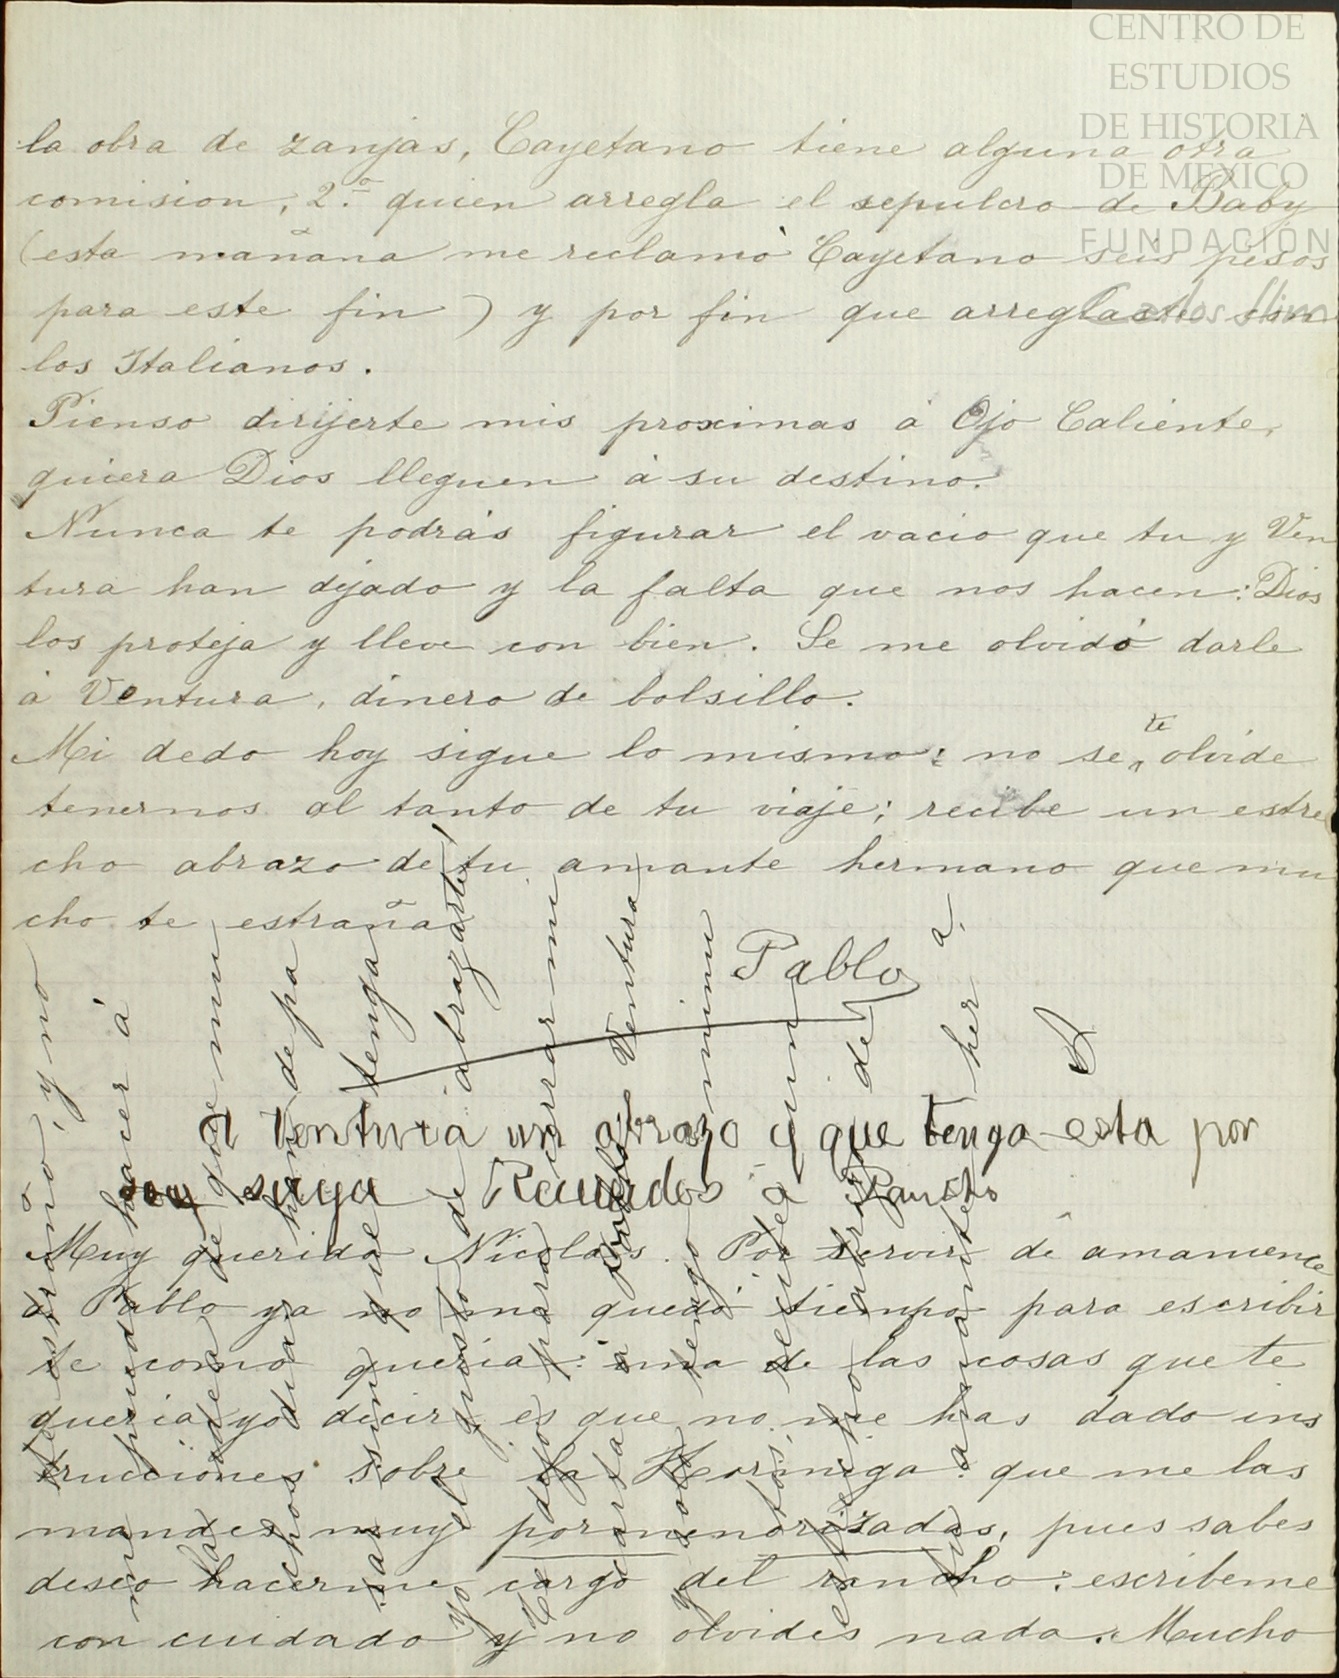 CENTRO DE
ESTUDIOS
DE HISTORIA
DE MÉXICO
FUNDACIÓN
Carlos Slim
la obra de zanjas, Cayetano tiene alguna otra
comision, 2.º quien arregla el sepulcro de Baby
(esta mañana me reclamó Cayetano seis pesos
para este fin) y por fin que arreglaste con
los Italianos.
Pienso dirijerte mis proximas á Ojo Caliente,
quiera Dios lleguen á su destino.
Nunca te podrás figurar el vacio que tu y Ven
tura han dejado y la falta que nos hacen: Dios
los proteja y lleve con bien. Se me olvidó darle
á Ventura, dinero de bolsillo.
Mi dedo hoy sigue lo mismo: no se te olvide
tenernos al tanto de tu viaje; recibe un estre
cho abrazo de tu amante hermano que mu
cho te estraña
Pablo
a Ventura un abrazo y que tenga esta por
suya Recuerdos a Pancho
Muy querido Nicolás. Por servir de amanuence
á Pablo ya no me quedó tiempo para escribir
te como queria: una de las cosas que te
queria yo decir es que no me has dado ins
trucciones sobre la Hormiga: que me las
mandes muy pormenorizadas, pues sabes
deseo hacerme cargo del rancho: escribeme
con cuidado y no olvides nada. Mucho
te estraño, y no
me puedo hacer á
la idea de que mu
chos dias han de pa
sar sin que tenga
yo el gusto de abrazarte
te dejo para cerrar mi
carta á Ventura
y solo tengo